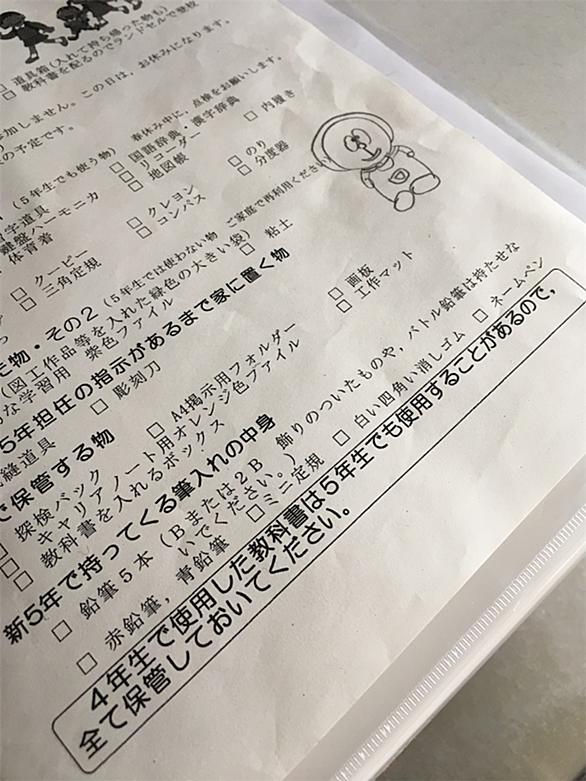 道具箱(入れて持ち帰った物も)
教科書を配るのでランドセルで登校
参加しません。この日は、お休みになります。
の予定です。
春休み中に、点検をお願いします。
(5年生でも使う物)
□ 国語辞典・漢字辞典 □ 内履き
習字道具 □ リコーダー
鍵盤ハーモニカ □ 地図帳 □ のり
体育着 □ 分度器
□ クレヨン
□ クーピー □ コンパス
□ 三角定規
物・その2(5年生では使わない物 ご家庭で再利用ください)
(図工作品等を入れた緑色の大きい袋) □ 粘土
な学習用 紫色ファイル
5年担任の指示があるまで家に置く物
裁縫道具 □ 彫刻刀 □ 画板
□ 工作マット
で保管する物
□ 探検バック □ A4掲示用フォルダー
□ キャリアノート用オレンジ色ファイル
□ 教科書を入れるボックス
新5年で持ってくる筆入れの中身
□ 鉛筆5本(Bまたは2B 飾りのついたものや，バトル鉛筆は持たせな
いでください。)
□ 赤鉛筆，青鉛筆 □ ミニ定規 □ 白い四角い消しゴム □ ネームペン
4年生で使用した教科書は5年生でも使用することがあるので，
全て保管しておいてください。